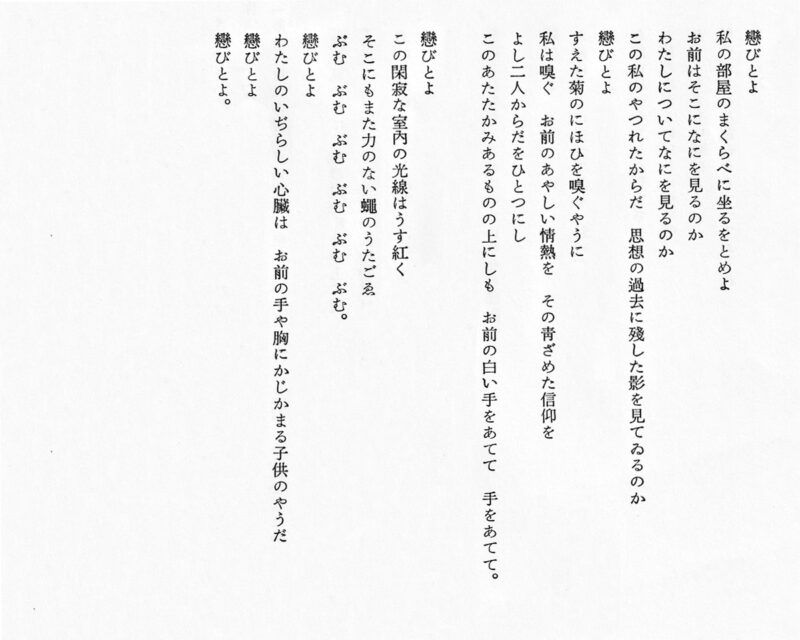 戀びとよ
私の部屋のまくらべに坐るをとめよ
お前はそこになにを見るのか
わたしについてなにを見るのか
この私のやつれたからだ　思想の過去に殘した影を見てゐるのか
戀びとよ
すえた菊のにほひを嗅ぐやうに
私は嗅ぐ　お前のあやしい情熱を　その靑ざめた信仰を
よし二人からだをひとつにし
このあたたかみあるものの上にしも　お前の白い手をあてて　手をあてて。
戀びとよ
この閑寂な室內の光線はうす紅く
そこにもまた力のない蠅のうたごゑ
ぶむ　ぶむ　ぶむ　ぶむ　ぶむ　ぶむ。
戀びとよ
わたしのいぢらしい心臟は　お前の手や胸にかじかまる子供のやうだ
戀びとよ
戀びとよ。